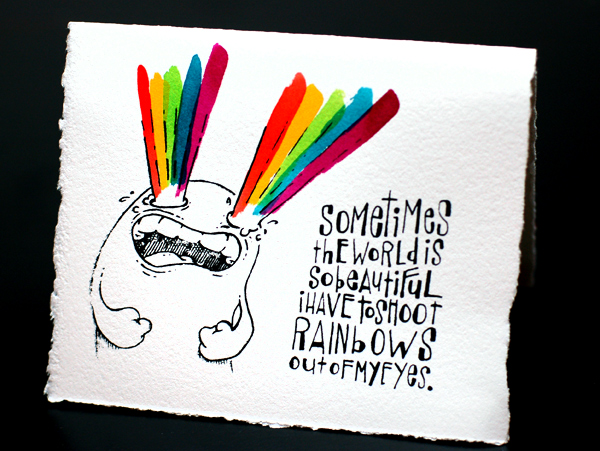 SOMETIMES
thE WORLD iS
SO bEAUTiFUL
i HAVE tO SHOOT
RAiNbOWS
OUt OF MY EYES.